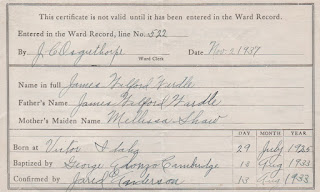 This certificate is not valid until it has been entered in the Ward Record.
Entered in the Ward Record, line No. 522
By J. C. Ogelthorpe Date Nov-2 1937
Ward Clerk
Name in full James Wilford Wardle
Father's Name James Wilford Wardle
Mother's Maiden Name Mellissa Shaw
DAY MONTH YEAR
Born at Victor Idaho 29 July 1925
Baptized by George Alonzo Cambridge 13 Aug 1933
Confirmed by Jared Anderson 13 Aug 1933